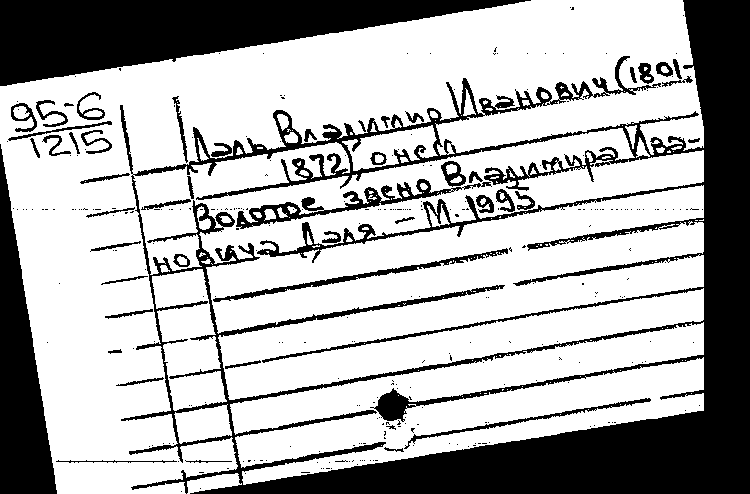 95-6
1215
Даль, Владимир Иванович (1801-
1872), о нем
Золотое звено Владимира Ива-
новича Даля. – М., 1995.